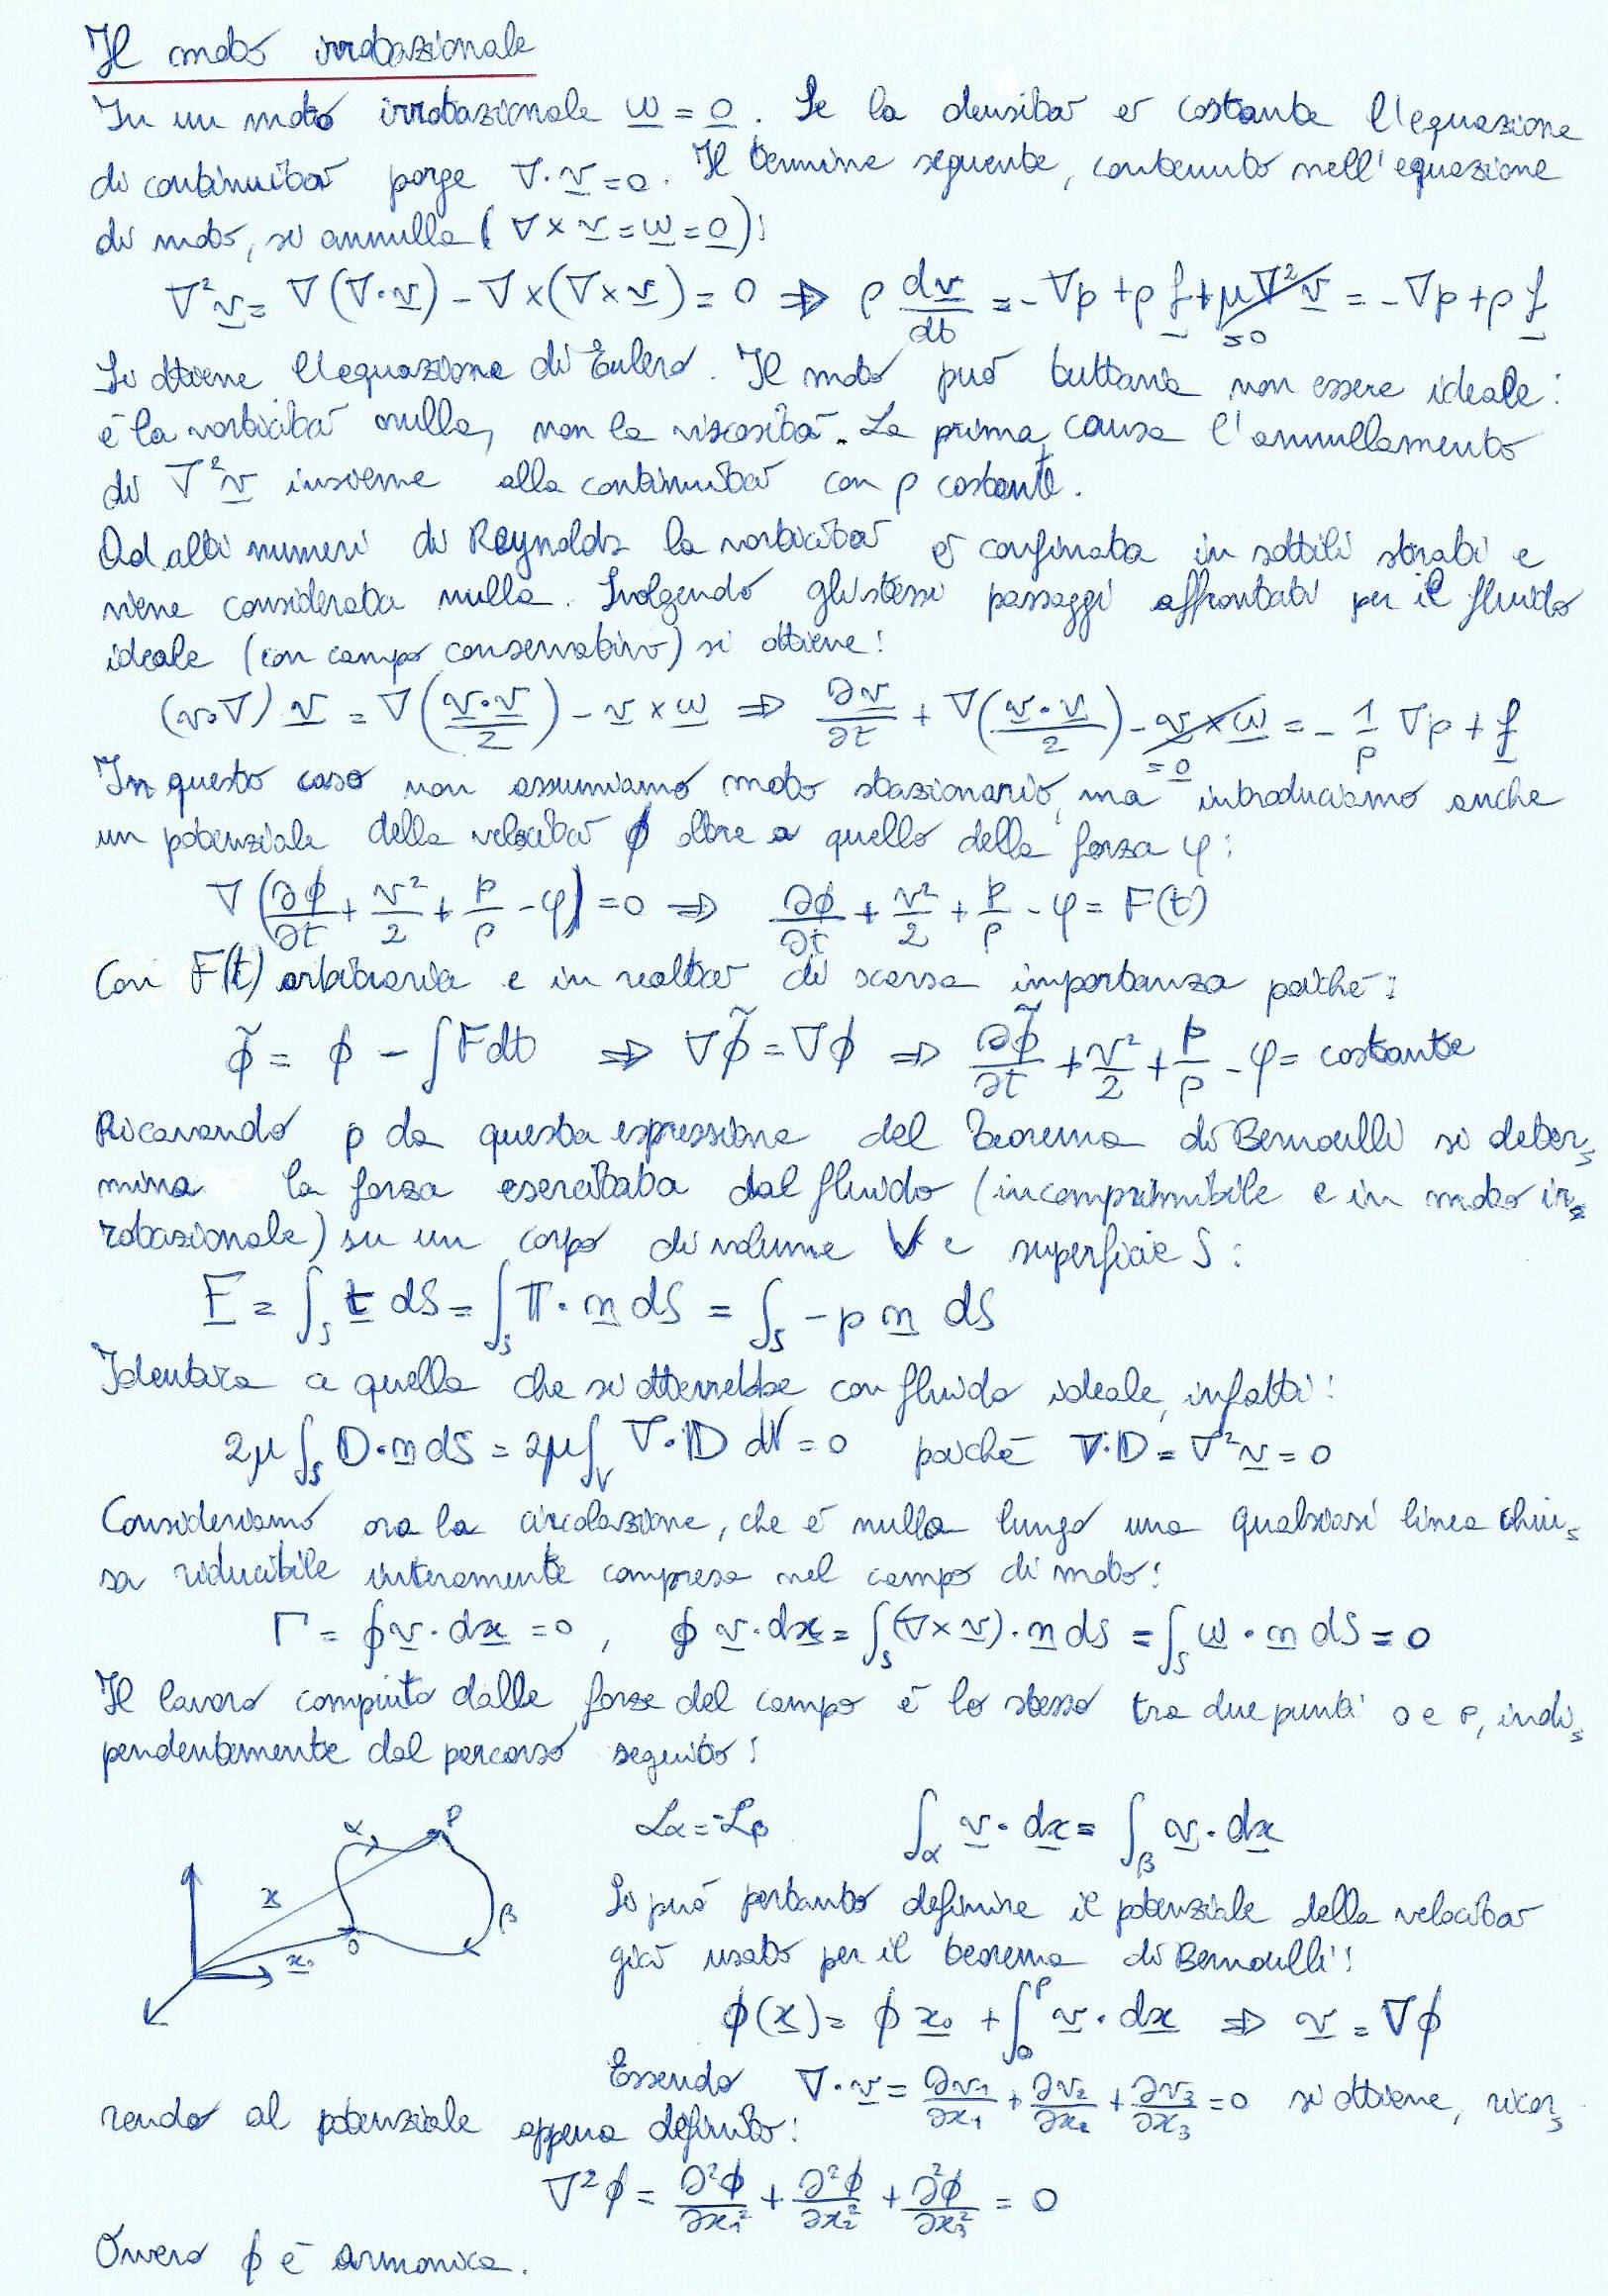 Il moto irrotazionale
In un moto irrotazionale ω = 0. Se la densità è costante l'equazione
di continuità porge ∇·v = 0. Il termine seguente, contenuto nell'equazione
di moto, si annulla (∇×v = ω = 0):
∇²v = ∇(∇·v) - ∇×(∇×v) = 0 ⇒ ρ dv/dt = -∇p + ρf + μ∇²v = -∇p + ρf
=0
Si ottiene l'equazione di Eulero. Il moto può tuttavia non essere ideale:
è la vorticità nulla, non la viscosità. La prima causa l'annullamento
di ∇²v insieme alla continuità con ρ costante.
Ad alti numeri di Reynolds la vorticità è confinata in sottili strati e
viene considerata nulla. Svolgendo gli stessi passaggi affrontati per il fluido
ideale (con campo conservativo) si ottiene:
(v·∇)v = ∇(v·v/2) - v×ω ⇒ ∂v/∂t + ∇(v·v/2) - v×ω = -1/ρ ∇p + f
=0
In questo caso non assumiamo moto stazionario, ma introduciamo anche
un potenziale della velocità ϕ oltre a quello della forza φ:
∇(∂ϕ/∂t + v²/2 + p/ρ - φ) = 0 ⇒ ∂ϕ/∂t + v²/2 + p/ρ - φ = F(t)
Con F(t) arbitraria e in realtà di scarsa importanza poiché:
ϕ̃ = ϕ - ∫F dt ⇒ ∇ϕ̃ = ∇ϕ ⇒ ∂ϕ̃/∂t + v²/2 + p/ρ - φ = costante
Ricavando p da questa espressione del teorema di Bernoulli si deter=
mina la forza esercitata dal fluido (incomprimibile e in moto ir=
rotazionale) su un corpo di volume V e superficie S:
F = ∫S t dS = ∫S 𝕋·n dS = ∫S -p n dS
Identica a quella che si otterrebbe con fluido ideale, infatti:
2μ∫S 𝔻·n dS = 2μ∫V ∇·𝔻 dV = 0 poiché ∇·𝔻 = ∇²v = 0
Consideriamo ora la circolazione, che è nulla lungo una qualsiasi linea chiu=
sa riducibile interamente compresa nel campo di moto:
Γ = ∮v·dx = 0, ∮v·dx = ∫S(∇×v)·n dS = ∫S ω·n dS = 0
Il lavoro compiuto dalle forze del campo è lo stesso tra due punti O e P, indi=
pendentemente dal percorso seguito:
α P
x
β
O
x₀
ℒα = ℒβ ∫α v·dx = ∫β v·dx
Si può pertanto definire il potenziale della velocità
già usato per il teorema di Bernoulli:
ϕ(x) = ϕ x₀ + ∫O^P v·dx ⇒ v = ∇ϕ
Essendo ∇·v = ∂v₁/∂x₁ + ∂v₂/∂x₂ + ∂v₃/∂x₃ = 0 si ottiene, ricor=
rendo al potenziale appena definito:
∇²ϕ = ∂²ϕ/∂x₁² + ∂²ϕ/∂x₂² + ∂²ϕ/∂x₃² = 0
Ovvero ϕ è armonica.